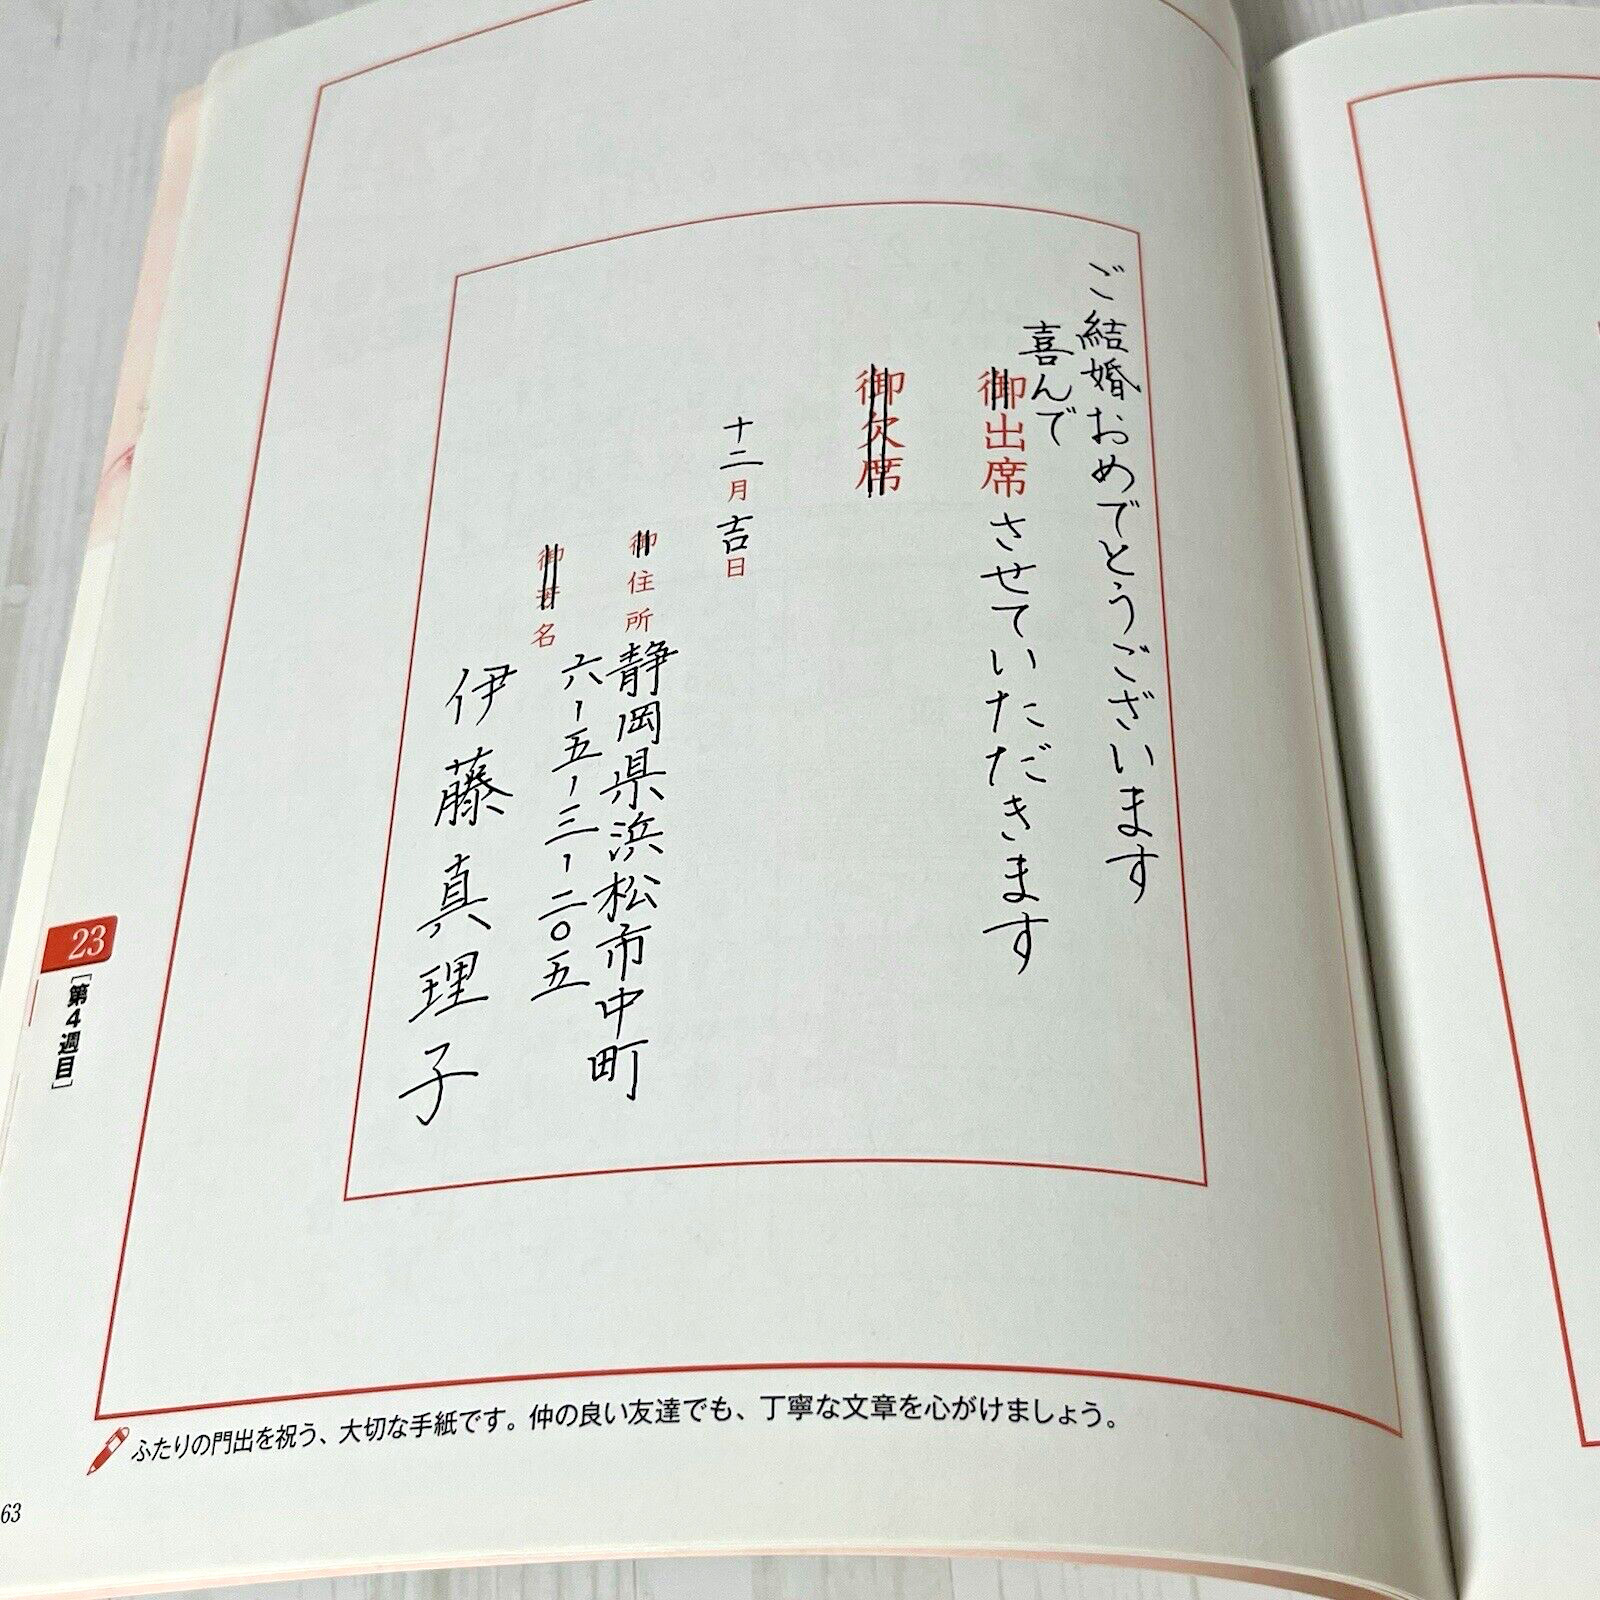 ご結婚おめでとうございます
喜んで
御出席させていただきます
御欠席
十二月吉日
御住所 静岡県浜松市中町
六-五-三-二〇五
御芳名
伊藤真理子
23
[第4週目]
ふたりの門出を祝う、大切な手紙です。仲の良い友達でも、丁寧な文章を心がけましょう。
63